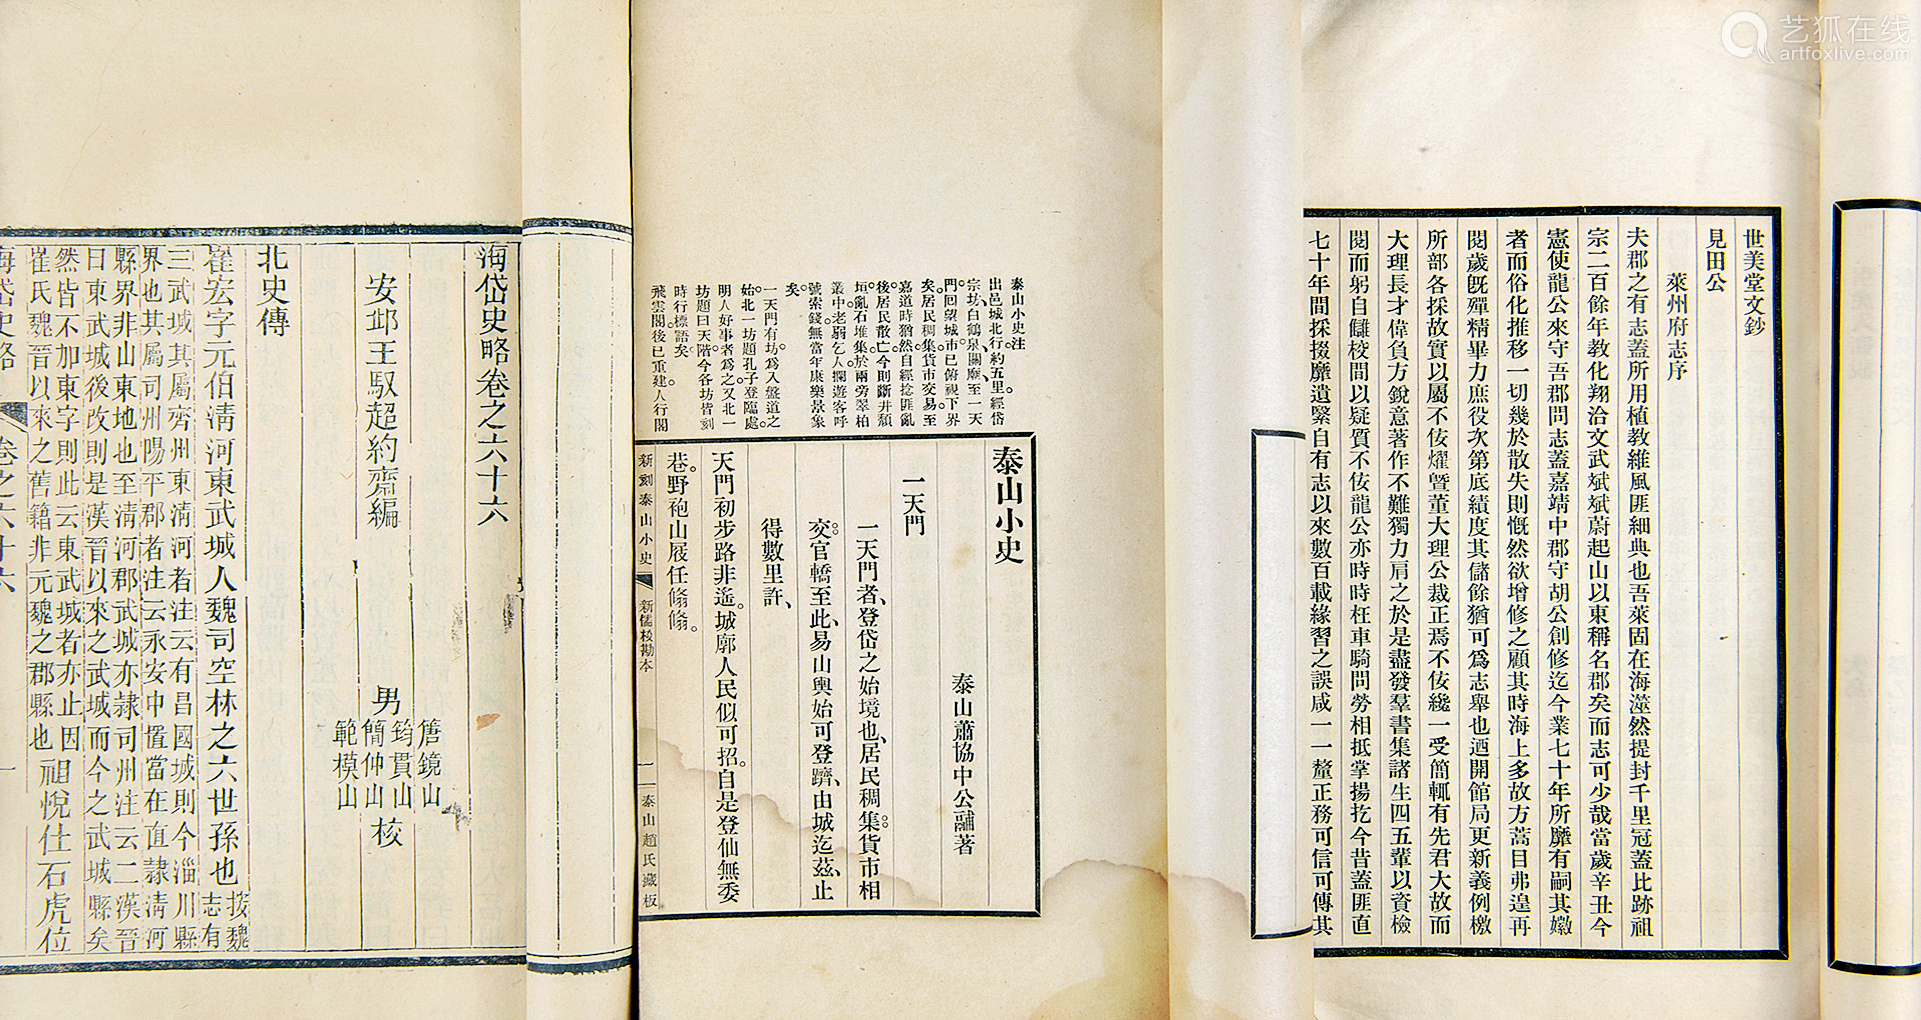 艺狐在线
artfoxlive.com
世美堂文鈔
見田公
萊州府志序
夫郡之有志蓋所用植教維風匪細典也吾萊固在海澨然提封千里冠蓋比跡祖
宗二百餘年教化翔洽文武斌斌蔚起山以東稱名郡矣而志可少哉當歲辛丑今
憲使龍公來守吾郡問志蓋嘉靖中郡守胡公創修迄今業七十年所靡有嗣其徽
者而俗化推移一切幾於散失則慨然欲增修之顧其時海上多故方蒿目弗遑再
閱歲旣殫精畢力庶役次第底績度其儲餘猶可爲志舉也迺開館局更新義例檄
所部各採故實以屬不佞燿暨董大理公裁正焉不佞纔一受簡輒有先君大故而
大理長才偉負方銳意著作不難獨力肩之於是盡發羣書集諸生四五輩以資檢
閱而躬自讎校間以疑質不佞龍公亦時時枉車騎問勞相抵掌揚扢今昔蓋匪直
七十年間採掇靡遺緊自有志以來數百載緣習之誤咸一一釐正務可信可傳其
泰山小史注
出邑城北行約五里。經岱
宗坊、白鶴泉、關廟、至一天
門。回望城市、已俯視下界
矣。居民稠集、貨市交易、至
嘉道時猶然。自經捻匪亂
後、居民散亡、今則斷井頹
垣、亂石堆集於兩旁翠柏
叢中、老弱乞人攔遊客呼
號索錢、無當年康樂景象
矣。
一天門有坊、爲入盤道之
始。北一坊、題孔子登臨處。
明人好事者爲之。又北一
坊、題曰天階、今各坊皆刻
時行標語矣。
飛雲閣、後已重建人行閣
泰山小史
泰山蕭協中公黼著
一天門
一天門者、登岱之始境也、居民稠集貨市相
交。官轎至此、易山輿始可登躋、由城迄茲、止
得數里許、
天門初步路非遙。城廓人民似可招。自是登仙無委
巷。野袍山屐任翛翛。
新刻泰山小史
新儒校勘本
一
泰山趙氏藏板
海岱史略卷之六十六
安邱王馭超約齋編
男
唐鏡山
筠貫山
簡仲山
範模山
校
北史傳
崔宏字元伯淸河東武城人魏司空林之六世孫也
按魏志有
三武城其屬齊州東淸河者注云有昌國城則今淄川縣
界也其屬司州陽平郡者注云永安中置當在直隸淸河
縣界非山東地也至淸河郡武城亦隸司州注云二漢晉
曰東武城後改則是漢晉以來之武城而今之武城縣矣
然皆不加東字則此云東武城者亦止因
崔氏魏晉以來之舊籍非元魏之郡縣也
祖悅仕石虎位
海岱史略
卷之六十六
一